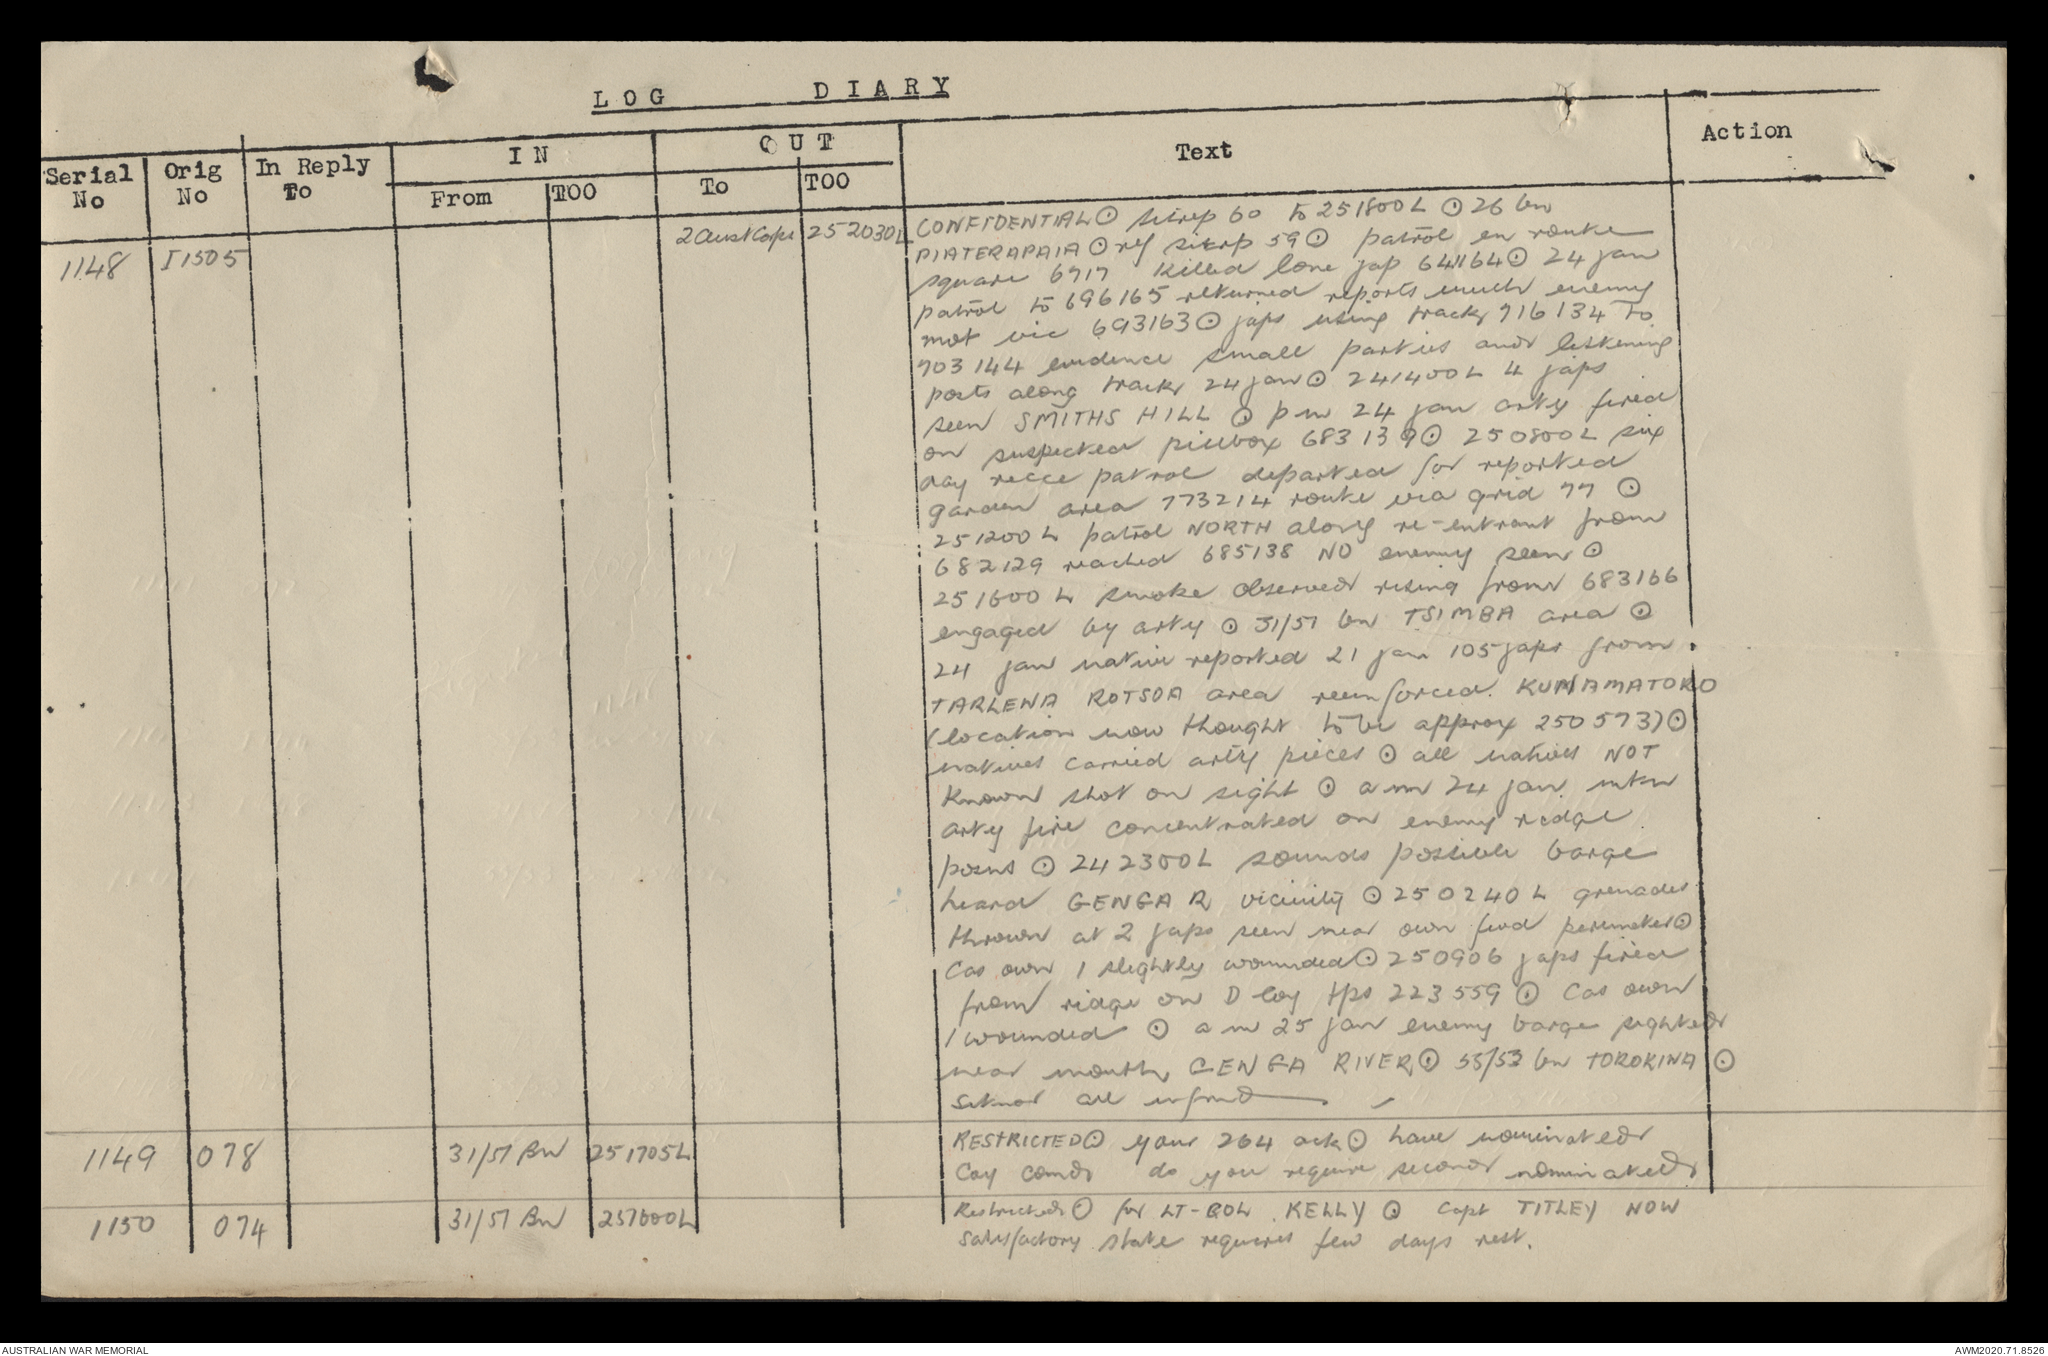 LOG DIARY
Serial No
Orig No
In Reply To
IN
From
TOO
OUT
To
TOO
Text
Action
1148 I1505 2 Aust Corps 252030L
CONFIDENTIAL ⊙ sitrep 60 to 251800L ⊙ 26 bn
PIATERAPAIA ⊙ ref sitrep 59 ⊙ patrol en route
square 6717 killed lone jap 641164 ⊙ 24 jan
patrol to 696165 returned reports much enemy
mot vic 693163 ⊙ japs using track 716134 to
703144 evidence small parties and listening
posts along track 24 jan ⊙ 241400L 4 japs
seen SMITHS HILL ⊙ pm 24 jan arty fired
on suspected pillbox 683139 ⊙ 250800L six
day recce patrol departed for reported
garden area 773214 route via grid 77 ⊙
251200L patrol NORTH along re-entrant from
682129 reached 685138 NO enemy seen ⊙
251600L smoke observed rising from 683166
engaged by arty ⊙ 31/51 bn TSIMBA area ⊙
24 jan native reported 21 jan 105 japs from
TARLENA ROTSOA area reenforced KUNAMATORO
(location now thought to be approx 250573) ⊙
natives carried arty pieces ⊙ all natives NOT
known shot on sight ⊙ am 24 jan mtn
arty fire concentrated on enemy ridge
posns ⊙ 242300L sounds possible barge
heard GENGA R vicinity ⊙ 250240L grenades
thrown at 2 japs seen near own fwd perimeter ⊙
Cas own 1 slightly wounded ⊙ 250906 japs fired
from ridge on D coy tps 223559 ⊙ Cas own
1 wounded ⊙ am 25 jan enemy barge sighted
near mouth GENGA RIVER ⊙ 55/53 bn TOROKINA ⊙
all infmd
1149 078 31/51 Bn 251705L
RESTRICTED ⊙ your 264 ack ⊙ have nominated
Coy comd do you require second nominated
1150 074 31/51 Bn 251600L
Restricted ⊙ for LT-COL KELLY ⊙ Capt TITLEY NOW
satisfactory state requires few days rest.
AUSTRALIAN WAR MEMORIAL
AWM2020.71.8526